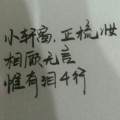 小轩窗，正梳妆
相顾无言
惟有泪4行